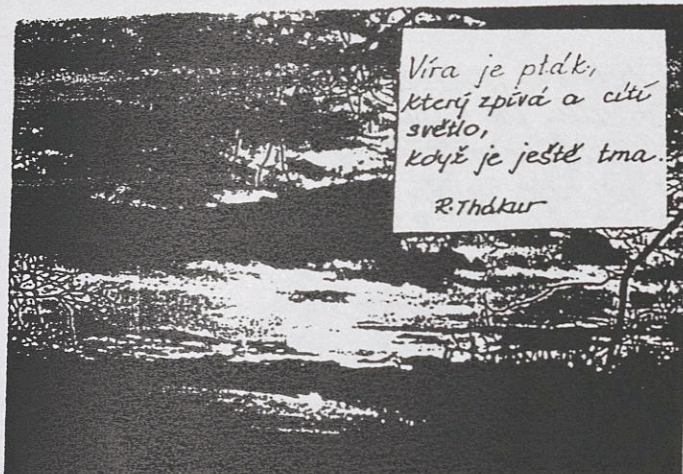 Víra je pták,
který zpívá a cítí
světlo,
když je ještě tma.
R. Thákur